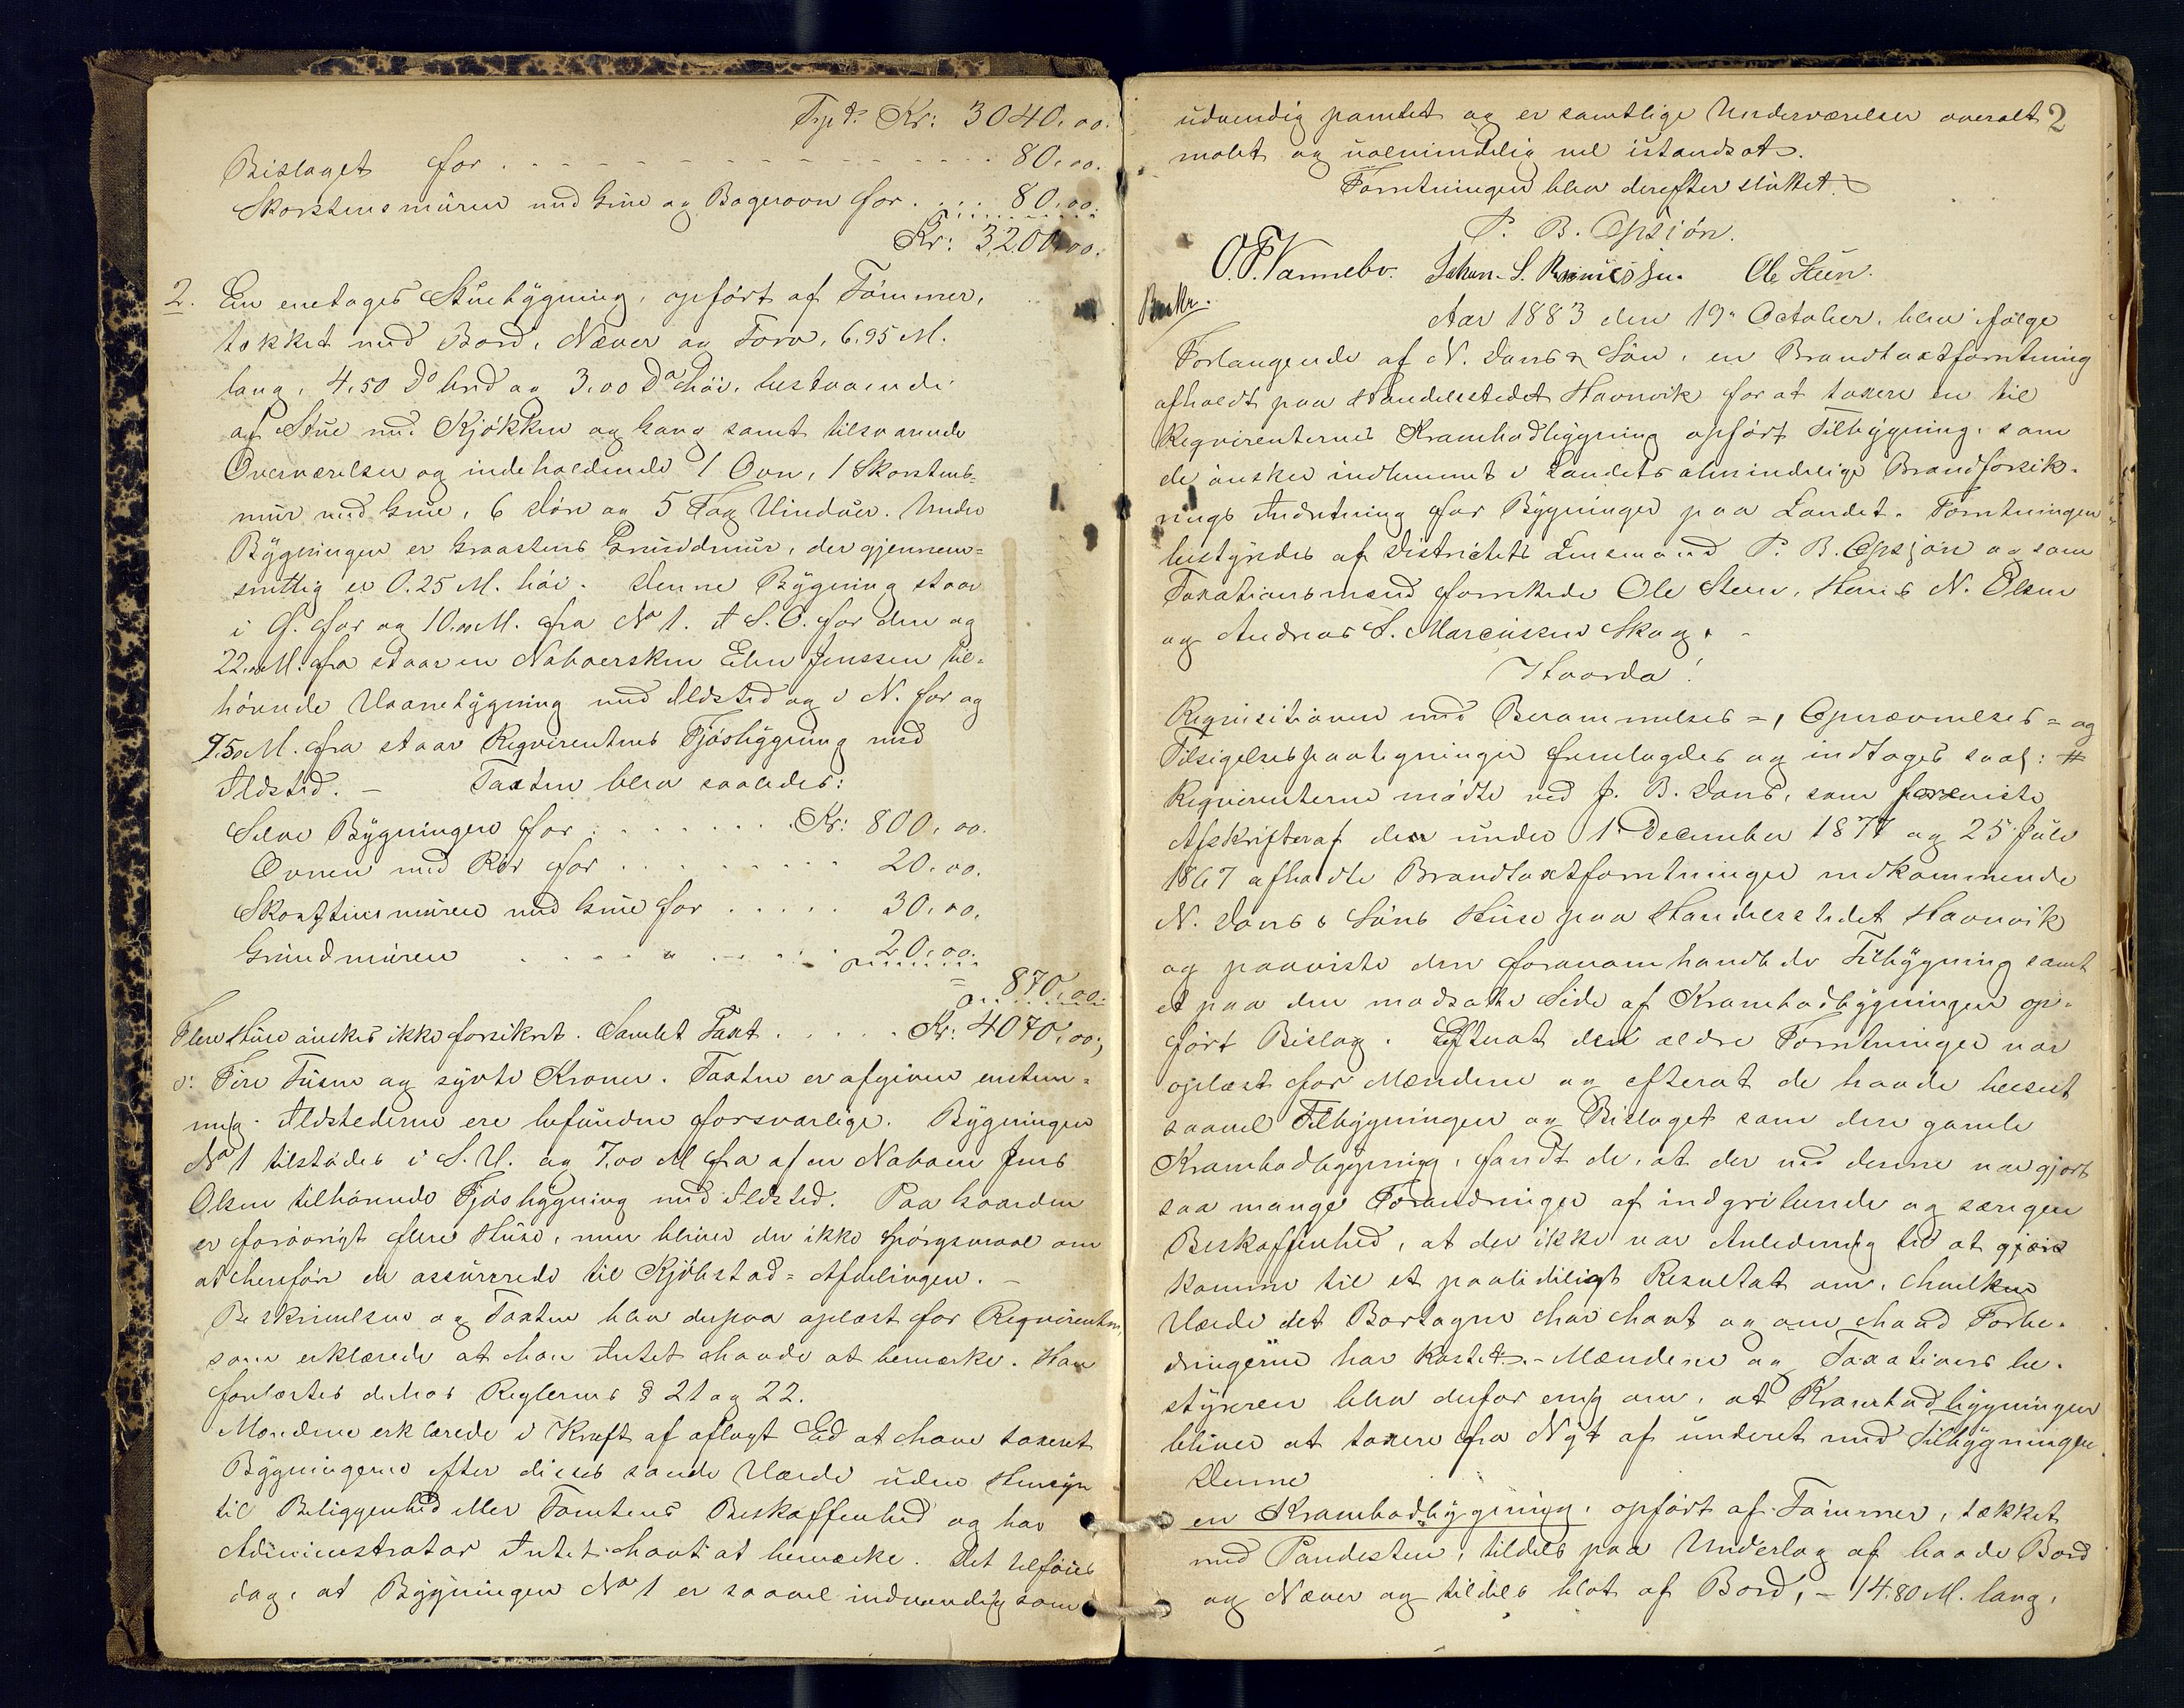 Trpt. Kr: 3040.00.
Bislaget for . - - - - - - - - - - - - - - - . 80.00.
Skorstensmüren med Grue og Bagerovn for . . . . 80.00.
Kr: 3200.00.
2. En enetages Stuebygning, opført af Tømmer,
tækket med Bord, Næver og Torv, 6.95 M.
lang, 4.50 Do bred og 3.00 Do høi, bestaaende
af Stue med Kjøkken og Gang samt tilsvarende
Overværelser og indeholdende 1 Ovn, 1 Skorstens=
mür med Grue, 6 Døre og 5 Fag Vinduer. Under
Bygningen er Graastens Grundmur, der gjennem=
snittlig er 0.25 M. høi. Denne Bygning staar
i Ø. for og 10.00 M. fra No 1. I S.O. for den og
22.00 M. fra staar en Naboersken Elen Jenssen til=
hørende Vaanebygning med Ildsted og i N. for og
9.50 M. fra staar Reqvirentens Fjøsbygning med
Ildsted. - Taxten blev saaledes:
Selve Bygningen for . . . . . . . . Kr: 800.00.
Ovnen med Rør for . . . . . . . . . 20.00.
Skorstensmuren med Grue for . . . . . 30.00.
Grundmuren . . . . " . . . . . 20.00.
= 870.00.
Flere Huse ønskes ikke forsikret. Samlet Taxt . . . . . Kr: 4070.00;
o: Fire Tusen og sytti Kroner. Taxten er afgiven enstem=
mig. Ildstederne ere befundne forsvarlige. Bygningen
No 1 tilstødes i S.V. og 7.00 M fra af en Naboen Jens
Olsen tilhørende Fjøsbygning med Ildsted. Paa Gaarden
er forøvrigt flere Huse, men bliver der ikke Spørgsmaal om
at henføre de assurerede til Kjøbstad=Afdelingen. -
Beskrivelsen og Taxten blev derpaa oplæst for Reqvirenten,
som erklærede at han Intet havde at bemærke. Han
forelæstes derhos Reglernes § 21 og 22.
Mændene erklærede i Kraft af aflagt Ed at have taxeret
Bygningerne efter disses sande Værdi uden Hensyn
til Beliggenhed eller Tomtens Beskaffenhed og har
Administrator Intet havt at bemærke. Det tilføies
dog, at Bygningen No 1 er saavel indvendig som
2
udvendig panelet og er samtlige Underværelser overalt
malet og ualmindelig vel istandsat.
Forretningen blev derefter sluttet.
P. B. Opsjøn.
O.P. Vannebo. Johan. S. Ole Steen.
Beskr.
Aar 1883 den 19. October, blev ifølge
Forlangende af N. Dons & Søn, en Brandtaxtforretning
afholdt paa Handelsstedet Havnvik for at taxere en til
Reqvirenternes Krambodbygning opført Tilbygning, som
de ønsker indlemmet i Landets almindelige Brandforsik=
rings Indretning for Bygninger paa Landet. Forretningen
bestyredes af Districtets Lensmand P. B. Opsjøn og som
Taxationsmænd fremkede Ole Steen, Hans N. Olsen
og Andreas S. Marcussen Skog. -
Hvorda!
Reqvisitionen med Berammelses=, Opnævnelses= og
Tilsigelsespaategninger fremlagdes og indtages saal: #
Reqvirenterne mødte ved J. B. Dons, som foreviste
Afskrifter af den under 1 December 1877 og 25 Juli
1867 afholdte Brandtaxtforretninger vedkommende
N. Dons & Søns Huse paa Handelsstedet Havnvik
og paaviste den foranomhandlede Tilbygning samt
et paa den modsatte Side af Krambodbygningen op=
ført Bislag. Efterat den ældre Forretninger var
oplæst for Mændene og efterat de havde beseet
saavel Tilbygningen og Bislaget som den gamle
Krambodbygning, fandt de, at der med denne var gjort
saa mange Forandringer af indgribende og særegen
Beskaffenhed, at der ikke var Anledning til at
komme til et paalideligt Resultat om, hvilken
Værdi det Borttagne har havt og om hvad Forbe=
dringerne har kostet. - Mændene og Taxationsbe=
styreren blev derfor enig om, at Krambodbygningen
bliver at taxere fra Nyt af underet med Tilbygningen.
Denne
en Krambodbygning, opført af Tømmer, tækket
med Pandesten, tildels paa Underlag af baade Bord
og Næver og tildels blot af Bord, - 14.80 M. lang,